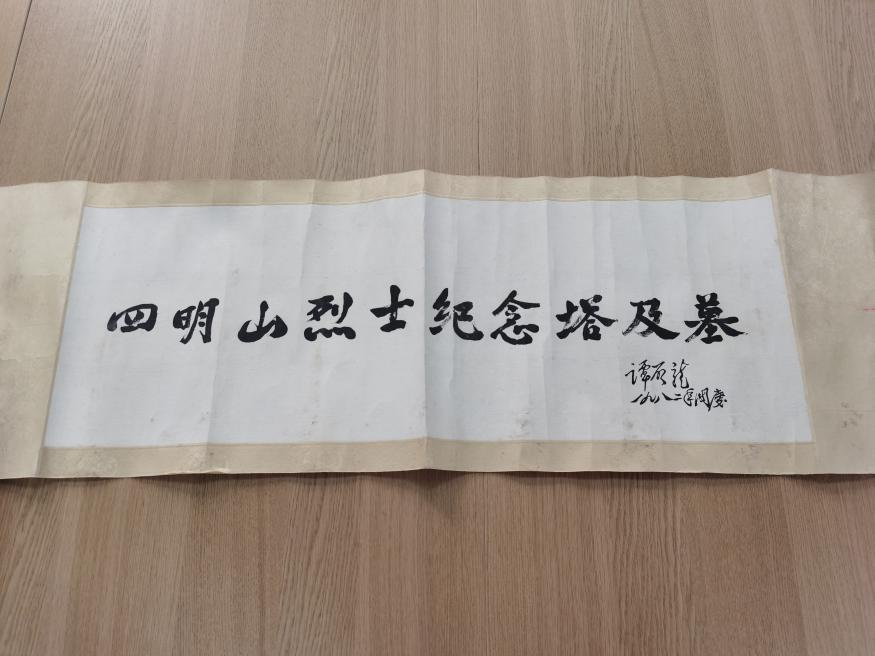 四明山烈士纪念塔及墓
谭启龙
一九八二年国庆